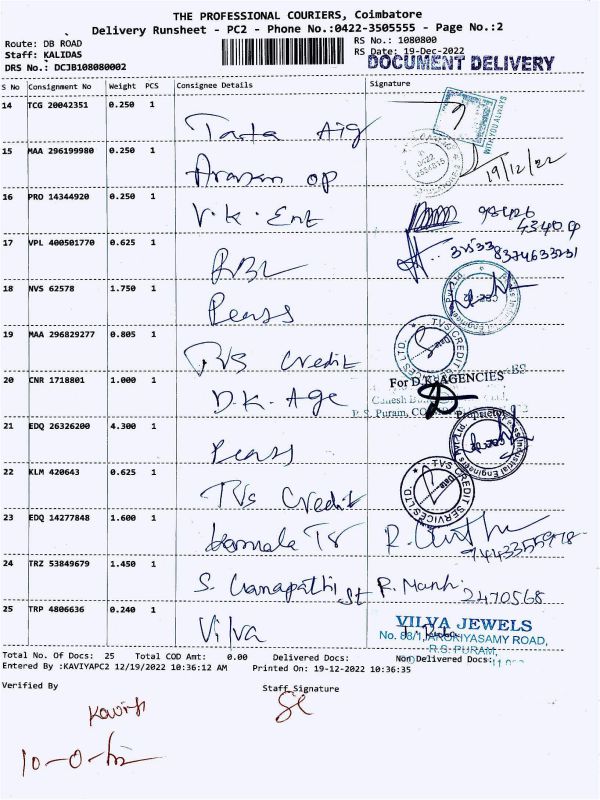 THE PROFESSIONAL COURIERS, Coimbatore
Delivery Runsheet - PC2 - Phone No.:0422-3505555 - Page No.:2
Route: DB ROAD RS No.: 1080800
Staff: KALIDAS RS Date: 19-Dec-2022
DRS No.: DCJB108080002 DOCUMENT DELIVERY
S No Consignment No Weight PCS Consignee Details Signature
14 TCG 20042351 0.250 1 Tata Aig
WITH YOU ALWAYS
15 MAA 296199980 0.250 1 Arasan op 19/12/22
16 PRO 14344920 0.250 1 V.K. Ent 98426
17 VPL 400501770 0.625 1 RBL
18 NVS 62578 1.750 1 Pearss
19 MAA 296829277 0.805 1 TVS Credit
TVS CREDIT SERVICES LTD.
20 CNR 1718801 1.000 1 D.K. Age For D.K. AGENCIES
P.S. Puram, Proprietor
21 EDQ 26326200 4.300 1 Pearss
22 KLM 420643 0.625 1 TVS Credit
TVS CREDIT SERVICES LTD
23 EDQ 14277848 1.600 1 Kamala TS
24 TRZ 53849679 1.450 1 S. Ganapathi St 2470568
25 TRP 4806636 0.240 1 Vilva
VILVA JEWELS
No. 88/1, AROKIYASAMY ROAD,
R.S. PURAM,
Total No. Of Docs: 25 Total COD Amt: 0.00 Delivered Docs: Non Delivered Docs:
Entered By :KAVIYAPC2 12/19/2022 10:36:12 AM Printed On: 19-12-2022 10:36:35
Verified By Staff Signature